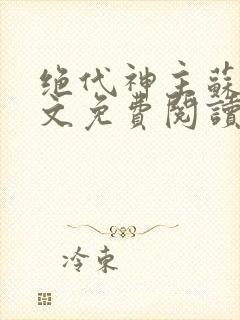 绝代神主蘇
文免費閱讀
冷東